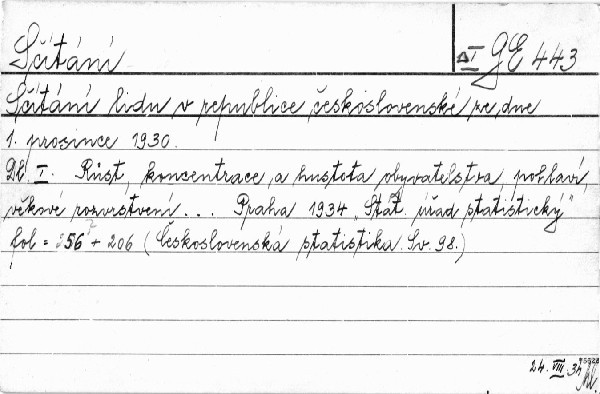 Sčítání I GE 443
Sčítání lidu v republice československé ze dne
1. prosince 1930.
Díl I. Růst, koncentrace a hustota obyvatelstva, pohlaví,
věkové rozvrstvení... Praha 1934 "Stát. úřad statistický"
fol = 56 + 206 (Československá statistika. Sv. 98.)
24. VIII 34